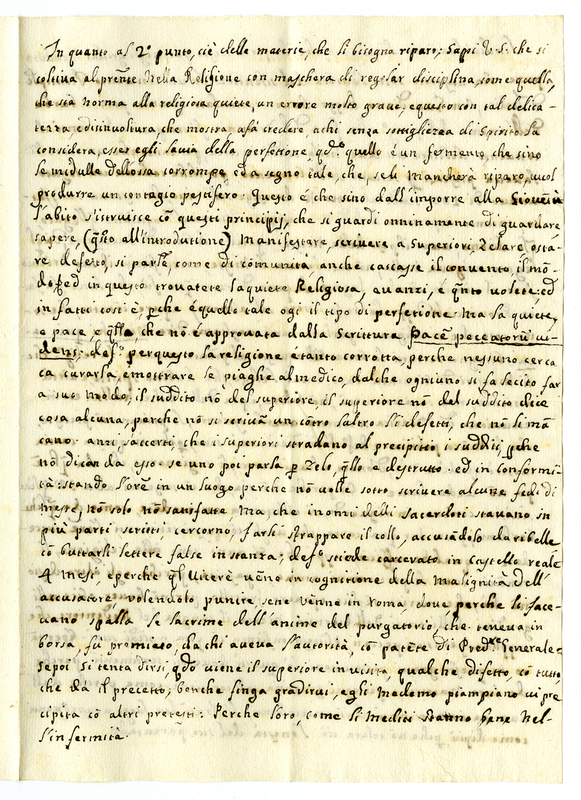 In quanto al 2º punto, cioè delle materie, che li bisogna riparo; Sapoi V.S. che si
coltiva al prẽnte nella Religione con maschera di regolar disciplina, come quella,
che sia norma alla religiosa quiete, un errore molto grave, e questo con tal delica-
tezza e disinvoltura, che mostra, a fà credere, a chi senza sottigliezza di Spirito la
considera, esser egli la via della perfettione, qdº quello è un fermento, che sino
le medulle dell'ossa corrompe, ed a segno tale, che, se li mancherà riparo, vuol
produrre un contagio pestifero. Questo è che sino dall'imporre alla Gioventù
l'abito s'istruisce cõ questi principij, che si guardi onninamente di guardare,
sapere, (qsto all'introdutione) manifestare, scrivere a Superiori, zelare, osta-
re defetto, si parli, come di cõmunità, anche cascasse il convento, il mõ-
do, ed in questo trovatete la quiete Religiosa, avanzi, e qnto volete; ed
in fatti cosi è pche è quello tale ogi il tipo di perfetione. ma la quiete,
e pace e qlla, che nõ è approvata dalla Scrittura Pacẽ peccatorũ vi-
dens: per questo la religione e tanto corrotta, perche nessuno cerca
ca curarla, e mostrare le piaghe al medico, dalche ogniuno si fa lecito far
a suo modo, il suddito nõ del superiore, il superiore nõ del suddito dice
cosa alcuna, perche nõ si scrivã un cõtro l'altro li difetti, che nõ li mã
cano: anzi, s'accerti, che i superiori stradano al precipitio i sudditi, pche
nõ dican da esso. se uno poi parla p zelo, qllo e destrutto. ed in conformi-
tà: stando l'ore in un luogo perche nõ volle sotto scrivere alcune fedi di
messe, nõ solo nõ sattifatte ma che i nomi delli sacerdoti stavano in
più parti scritti, cercorno, farli strappare il collo, accusãdolo da ribelle
cõ buttarli lettere false in stanza; stiede carcerato in Castello reale
4 mesi, e perche ql Vicerè vẽno in cognitione della malignità dell'
accusatore volendolo punire, sene venne in roma, dove perche li face-
vano spalla le lacrime dell'anime del purgatorio, che teneva in
borsa, fù premiato, da chi aveva l'autorità, cõ patẽte di Predre Generale.
Sepoi si tenta dirsi, qdo viene il superiore in visita, qualche difetto, cõ tutto
che dà il precetto, benche finga gradirvi, egli medemo piampiano vi pre
cipita cõ altri pretesti: Perche loro, come li medici stanno bene nel-
l'infermità.